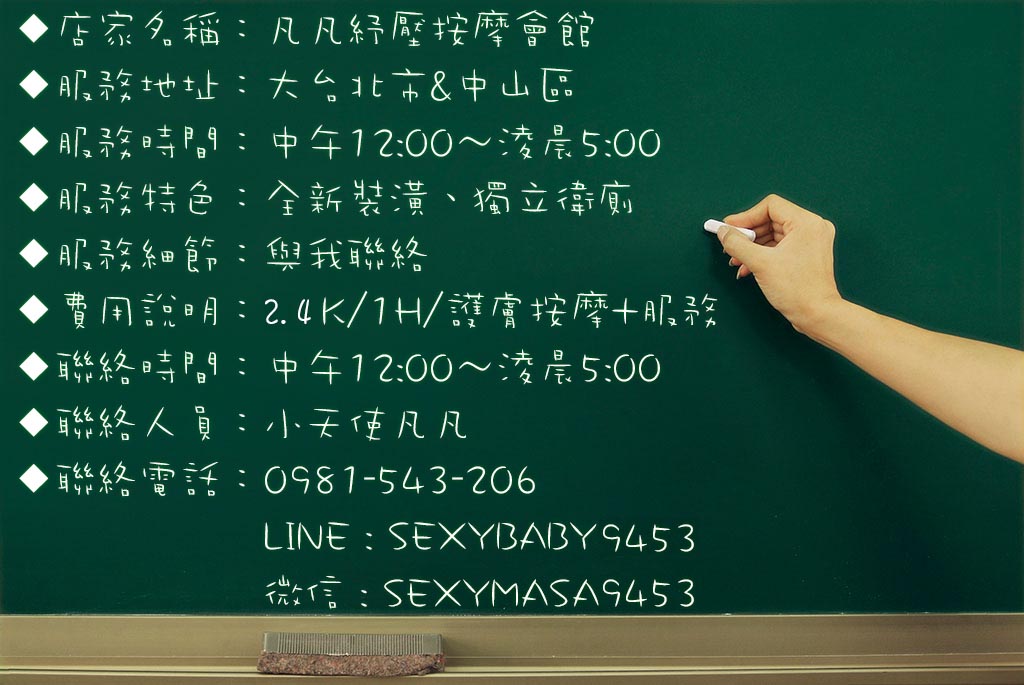 ◆店家名稱：凡凡紓壓按摩會館
◆服務地址：大台北市&中山區
◆服務時間：中午12:00～淩晨5:00
◆服務特色：全新裝潢、獨立衛廁
◆服務細節：與我聯絡
◆費用說明：2.4K/1H/護膚按摩+服務
◆聯絡時間：中午12:00～淩晨5:00
◆聯絡人員：小天使凡凡
◆聯絡電話：0981-543-206
LINE：SEXYBABY9453
微信：SEXYMASA9453